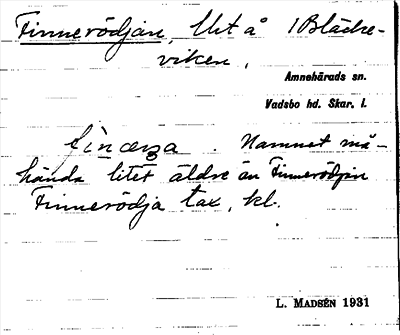 Finnerödjan, Ut å i Bläcke-
viken,
Amnehärads sn.
Vadsbo hd. Skar. l.
Namnet må-
hända litet äldre än Finnerödjan
Finnerödja tax, kl.
L. MADSÉN 1931